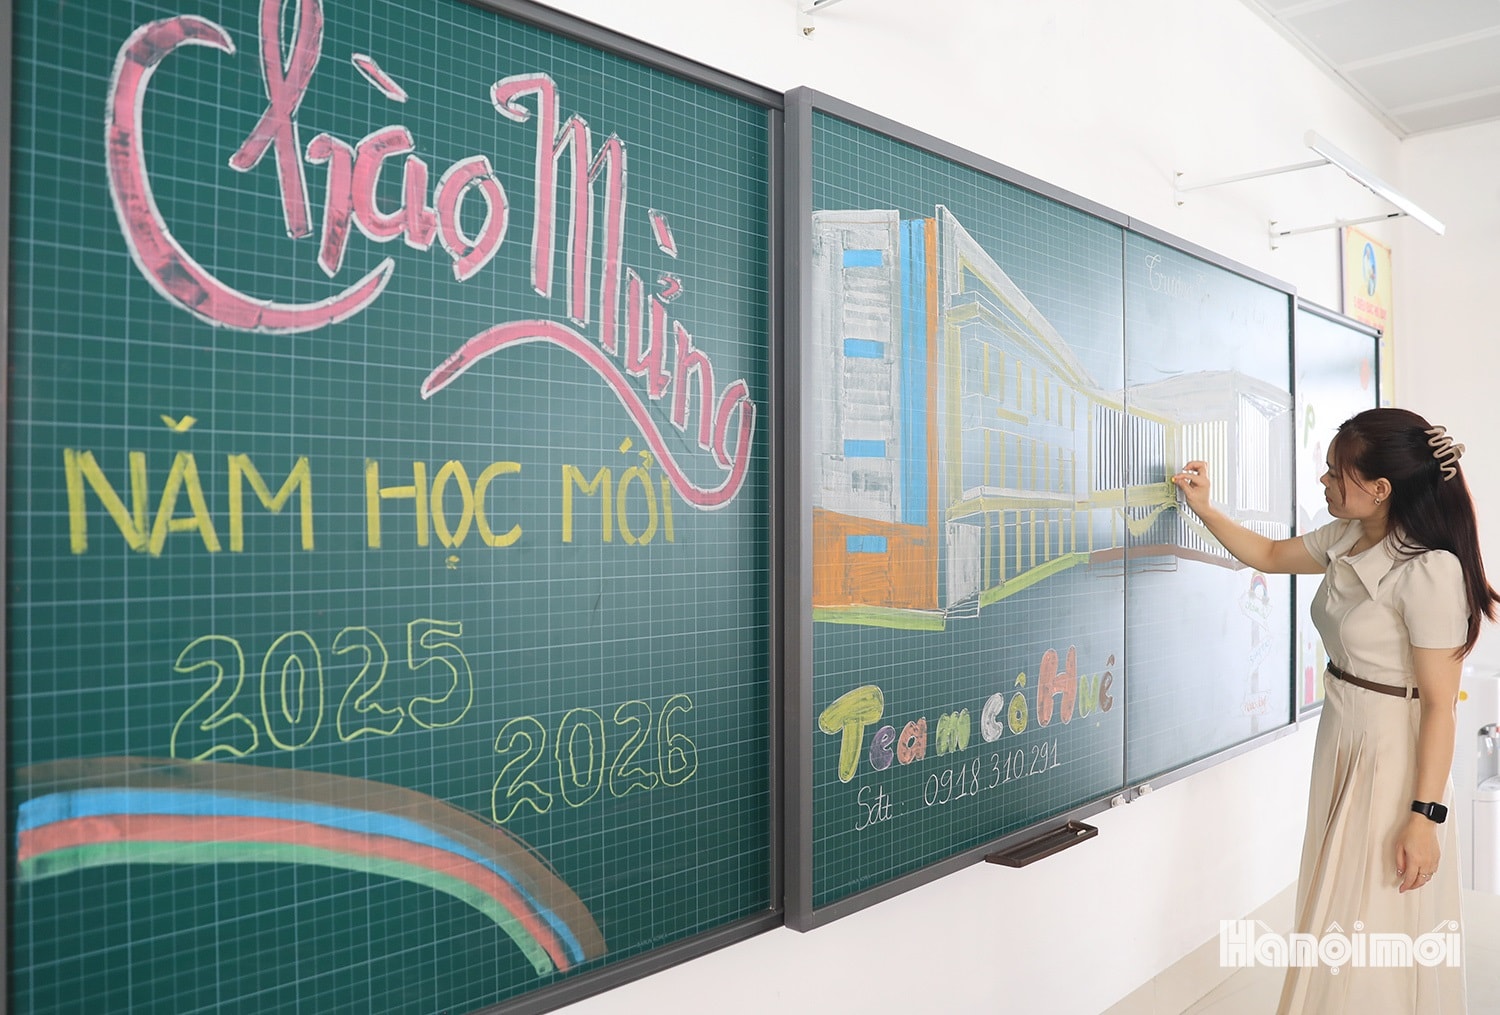 Chào
Mừng
NĂM HỌC MỚI
2025
2026
Team cô Huệ
Sđt: 0918.310.291
Hànộimới